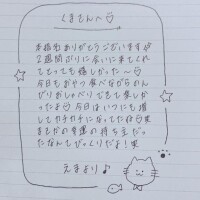 くまさんへ♡
本指名ありがとうございます
2週間ぶりに会いに来てくれ
てとっても嬉しかった〜♡
今日もおやつ食べながらのん
びりおしゃべりできて楽しか
ったよ♡ 今日はいつにも増
してガチガチになってたね
まさかの
なんてびっくりだよ！笑
えまより♪